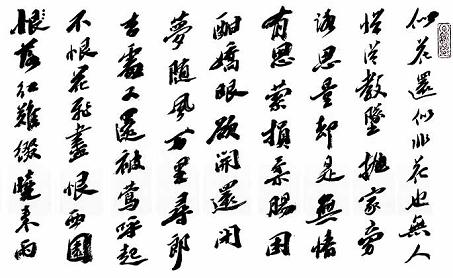 似花還似非花也無人
惜從教墜拋家旁
路思量却是無情
有思縈損柔腸困
酣嬌眼欲開還閉
夢随風万里尋郎
去處又還被鶯呼起
不恨花飛盡恨西園
恨落红難綴曉來雨